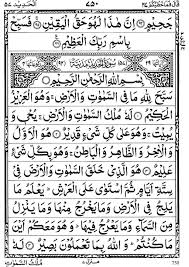 قال فما خطبكم ٢٧ ٧٥٠ الحديد ٥٧
جَحِيْمٍ ۝ اِنَّ هٰذَا لَهُوَ حَقُّ الْيَقِيْنِ ۝ فَسَبِّحْ
بِاسْمِ رَبِّكَ الْعَظِيْمِ ۝
بِسْمِ اللّٰهِ الرَّحْمٰنِ الرَّحِيْمِ
سَبَّحَ لِلّٰهِ مَا فِي السَّمٰوٰتِ وَالْاَرْضِ ۚ وَهُوَ الْعَزِيْزُ
الْحَكِيْمُ ۝ لَهٗ مُلْكُ السَّمٰوٰتِ وَالْاَرْضِ ۚ يُحْيٖ
وَيُمِيْتُ ۚ وَهُوَ عَلٰى كُلِّ شَيْءٍ قَدِيْرٌ ۝ هُوَ الْاَوَّلُ
وَالْاٰخِرُ وَالظَّاهِرُ وَالْبَاطِنُ ۚ وَهُوَ بِكُلِّ شَيْءٍ
عَلِيْمٌ ۝ هُوَ الَّذِيْ خَلَقَ السَّمٰوٰتِ وَالْاَرْضَ فِيْ
سِتَّةِ اَيَّامٍ ثُمَّ اسْتَوٰى عَلَى الْعَرْشِ ۚ يَعْلَمُ مَا
يَلِجُ فِي الْاَرْضِ وَمَا يَخْرُجُ مِنْهَا وَمَا يَنْزِلُ
مِنَ السَّمَآءِ وَمَا يَعْرُجُ فِيْهَا ۚ وَهُوَ مَعَكُمْ اَيْنَ
مَا كُنْتُمْ ۚ وَاللّٰهُ بِمَا تَعْمَلُوْنَ بَصِيْرٌ ۝ لَهٗ
مُلْكُ السَّمٰوٰتِ